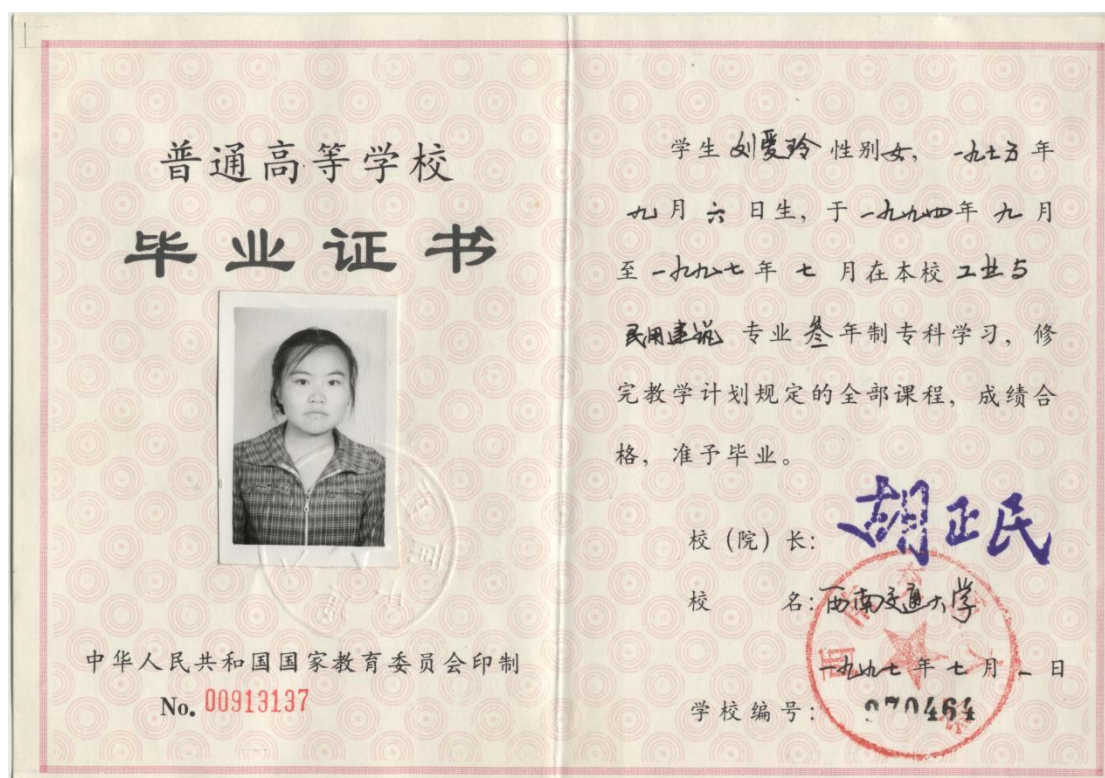 普通高等学校
毕业证书
中华人民共和国国家教育委员会印制
No. 00913137
学生 刘爱玲 性别女, 一九七五年
九月 六 日生, 于 一九九四年 九 月
至 一九九七 年 七 月在本校 工业与
民用建筑 专业 叁年制专科学习, 修
完教学计划规定的全部课程, 成绩合
格, 准予毕业。
校 (院) 长: 胡正民
校 名: 西南交通大学
一九九七 年 七 月 一 日
学校编号: 970464